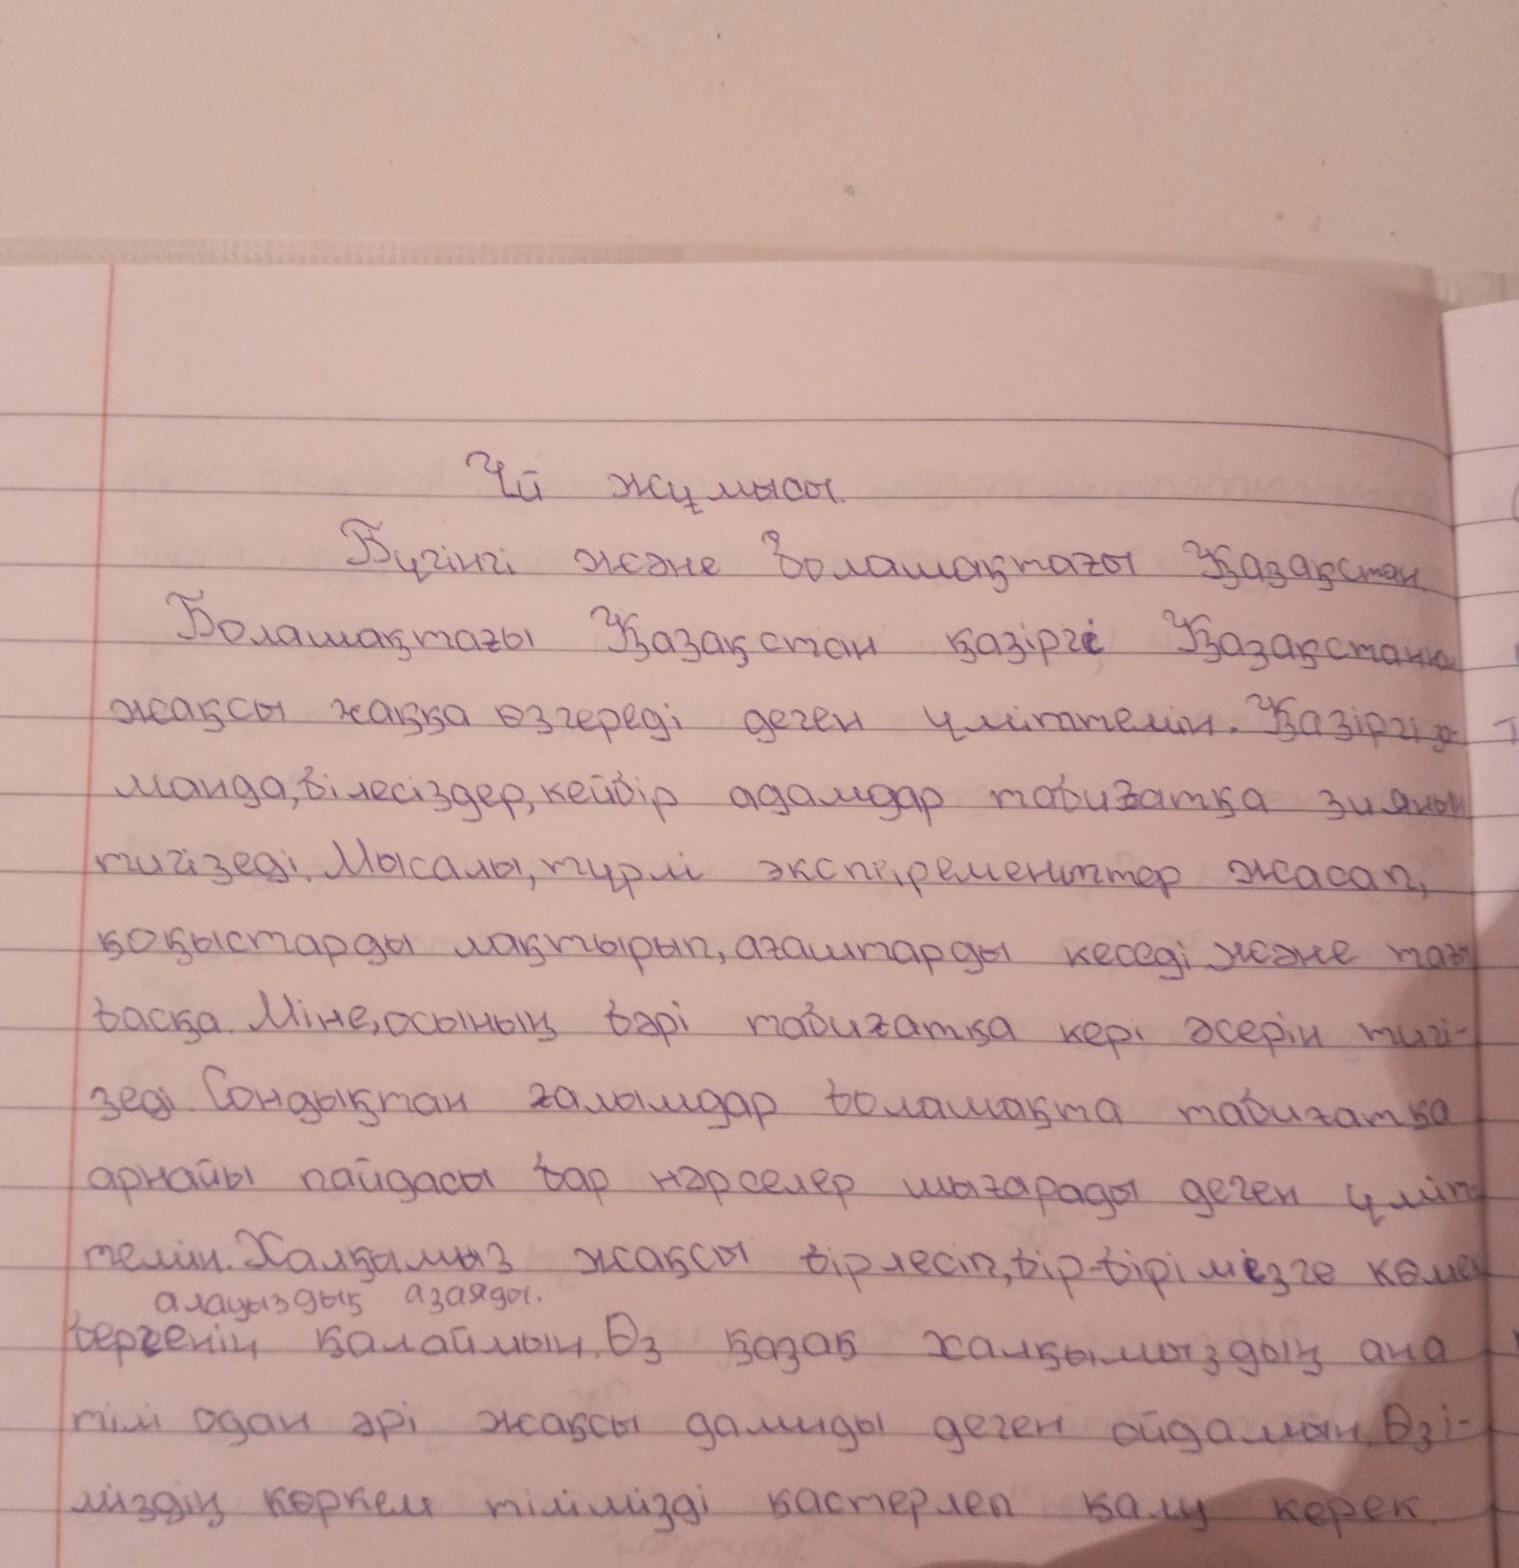 Үй жұмысы.
Бүгінгі және болашақтағы Қазақстан
Болашақтағы Қазақстан қазіргі
жақсы жаққа өзгереді деген үміттемін. Қазіргі за-
манда, білесіздер, кейбір адамдар табиғатқа зиянын
тигізеді. Мысалы, түрлі эксперементтер жасап,
қоқыстарды лақтырып, ағаштарды кеседі және тағы
басқа. Міне, осының бәрі табиғатқа кері әсерін тигі-
зеді. Сондықтан ғалымдар болашақта табиғатқа
арнайы пайдасы бар нәрселер шығарады деген үміт-
темін. Халқымыз жақсы бірлесіп, бір-бірімізге көмек
алауыздық азаяды.
бергенін қалаймын. Өз қазақ халқымыздың ана
тілі одан әрі жақсы дамиды деген ойдамын. Өзі-
міздің көркем тілімізді қастерлеп қалу керек.